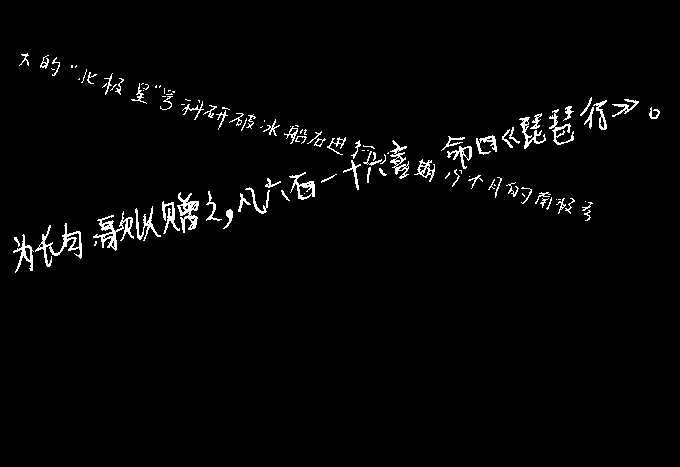 大的“北极星”号科研破冰船在进行期19个月的南极考
为长句歌以赠之,凡六百一十六言命曰《琵琶行》。